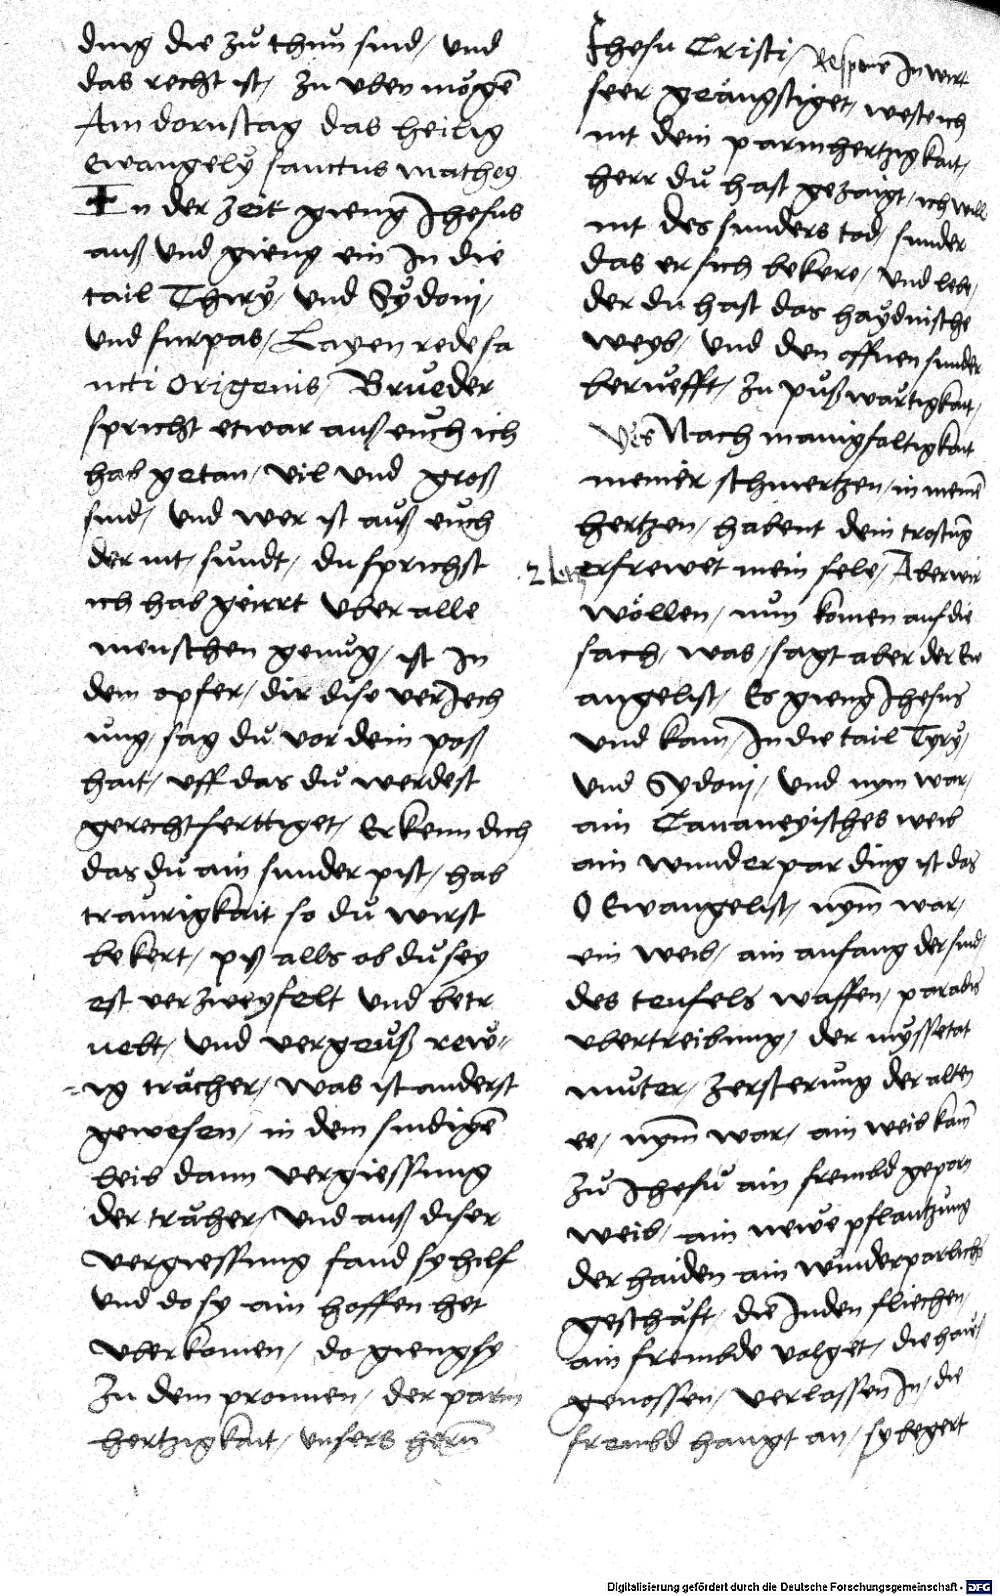 ding die zů thun sind / und
das recht ist / zu vben mögē
Am dornstag das heilig
Ewangely sanctus matheg
In der zeit gieng Jhesus
auß und gieng ein In die
tail Thiry / und Sydonj /
und furpas / Layen rede sa
ncti Origenis / Brueder
spricht etwar auß euch ich
hab getan / vil und groß
sind / und wer ist auß euch
der nit / sůndt / du sprichst
ich hab geirrt vber alle
menschen genůg / ist In
dem opfer / dir dise verJech
ung / sag dů vor dein poß
hait / vff das dů werdest
gerechtferttiget / Erkenn dich
das dů ain sunder pist / hab
traurigkait so dů wirst
bekert / pys alls ob dů sey
est verzweyfelt und betr
uebt / und vergeůß rew
ig trächer / was ist anderst
gewesen / in dem sindigē
beib dann vergiessung
der träher / und auß diser
vergiessung fand sy hilf
und do sy ain hoffen het
vberkomen / do gieng sy
zu dem pronnen / der parm
hertzigkait / unsers herñ
Jhesu Cristi / In wirt
seer geängstiget / weste ich
nit dein parmhertzigkait /
herr dů hast gezaigt / ich will
nit des sunders tod / sunder
das er sich bekere / und lebe /
der du hast das haydnische
weyb / und den offnen sunder
berůefft / zu půßwärtigkait /
Vers Nach manigfaltigkait
meiner schmertzen / in meinē
hertzen / habent dein trostūg
erfrewet mein sele / Aber wir
wöllen / nůn komen auf die
sach / was / sagt aber der Ew
angelist / Es gieng Jhesus
und kam / In die tail Tyry /
und Sydonj / und nym war /
ain Cananeyisches weib
ain wunderpar ding ist das
O Ewangelist / nym̄ war /
ein weib / ain anfang der sind /
des teufels waffen / paradis
vbertreibung / der myssetat
můter / zersterung der alten
ee / nym̄ war / ain weib kam̄
zů Jhesů ain frembd geporn
weib / ain newe pflantzung
der haiden ain wunderparlichs
geschäft / die Juden fliechen /
ain frembde volget / die haus
genossen / verlassen In / die
frembd hangt an / sy begert
Digitalisierung gefördert durch die Deutsche Forschungsgemeinschaft - DFG